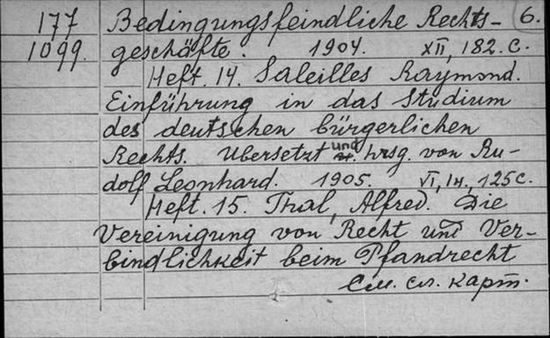 177 Bedingungsfeindliche Rechts- 6.
1099. geschäfte. 1904. XII, 182.c.
Heft. 14. Saleilles Raymond.
Einführung in das Studium
des deutschen bürgerlichen
Rechts. Übersetzt und hrsg. von Ru-
dolf Leonhard. 1905. VI, 125c.
Heft. 15. Thal, Alfred. Die
Vereinigung von Recht und Ver-
bindlichkeit beim Pfandrecht
См. сл. карт.